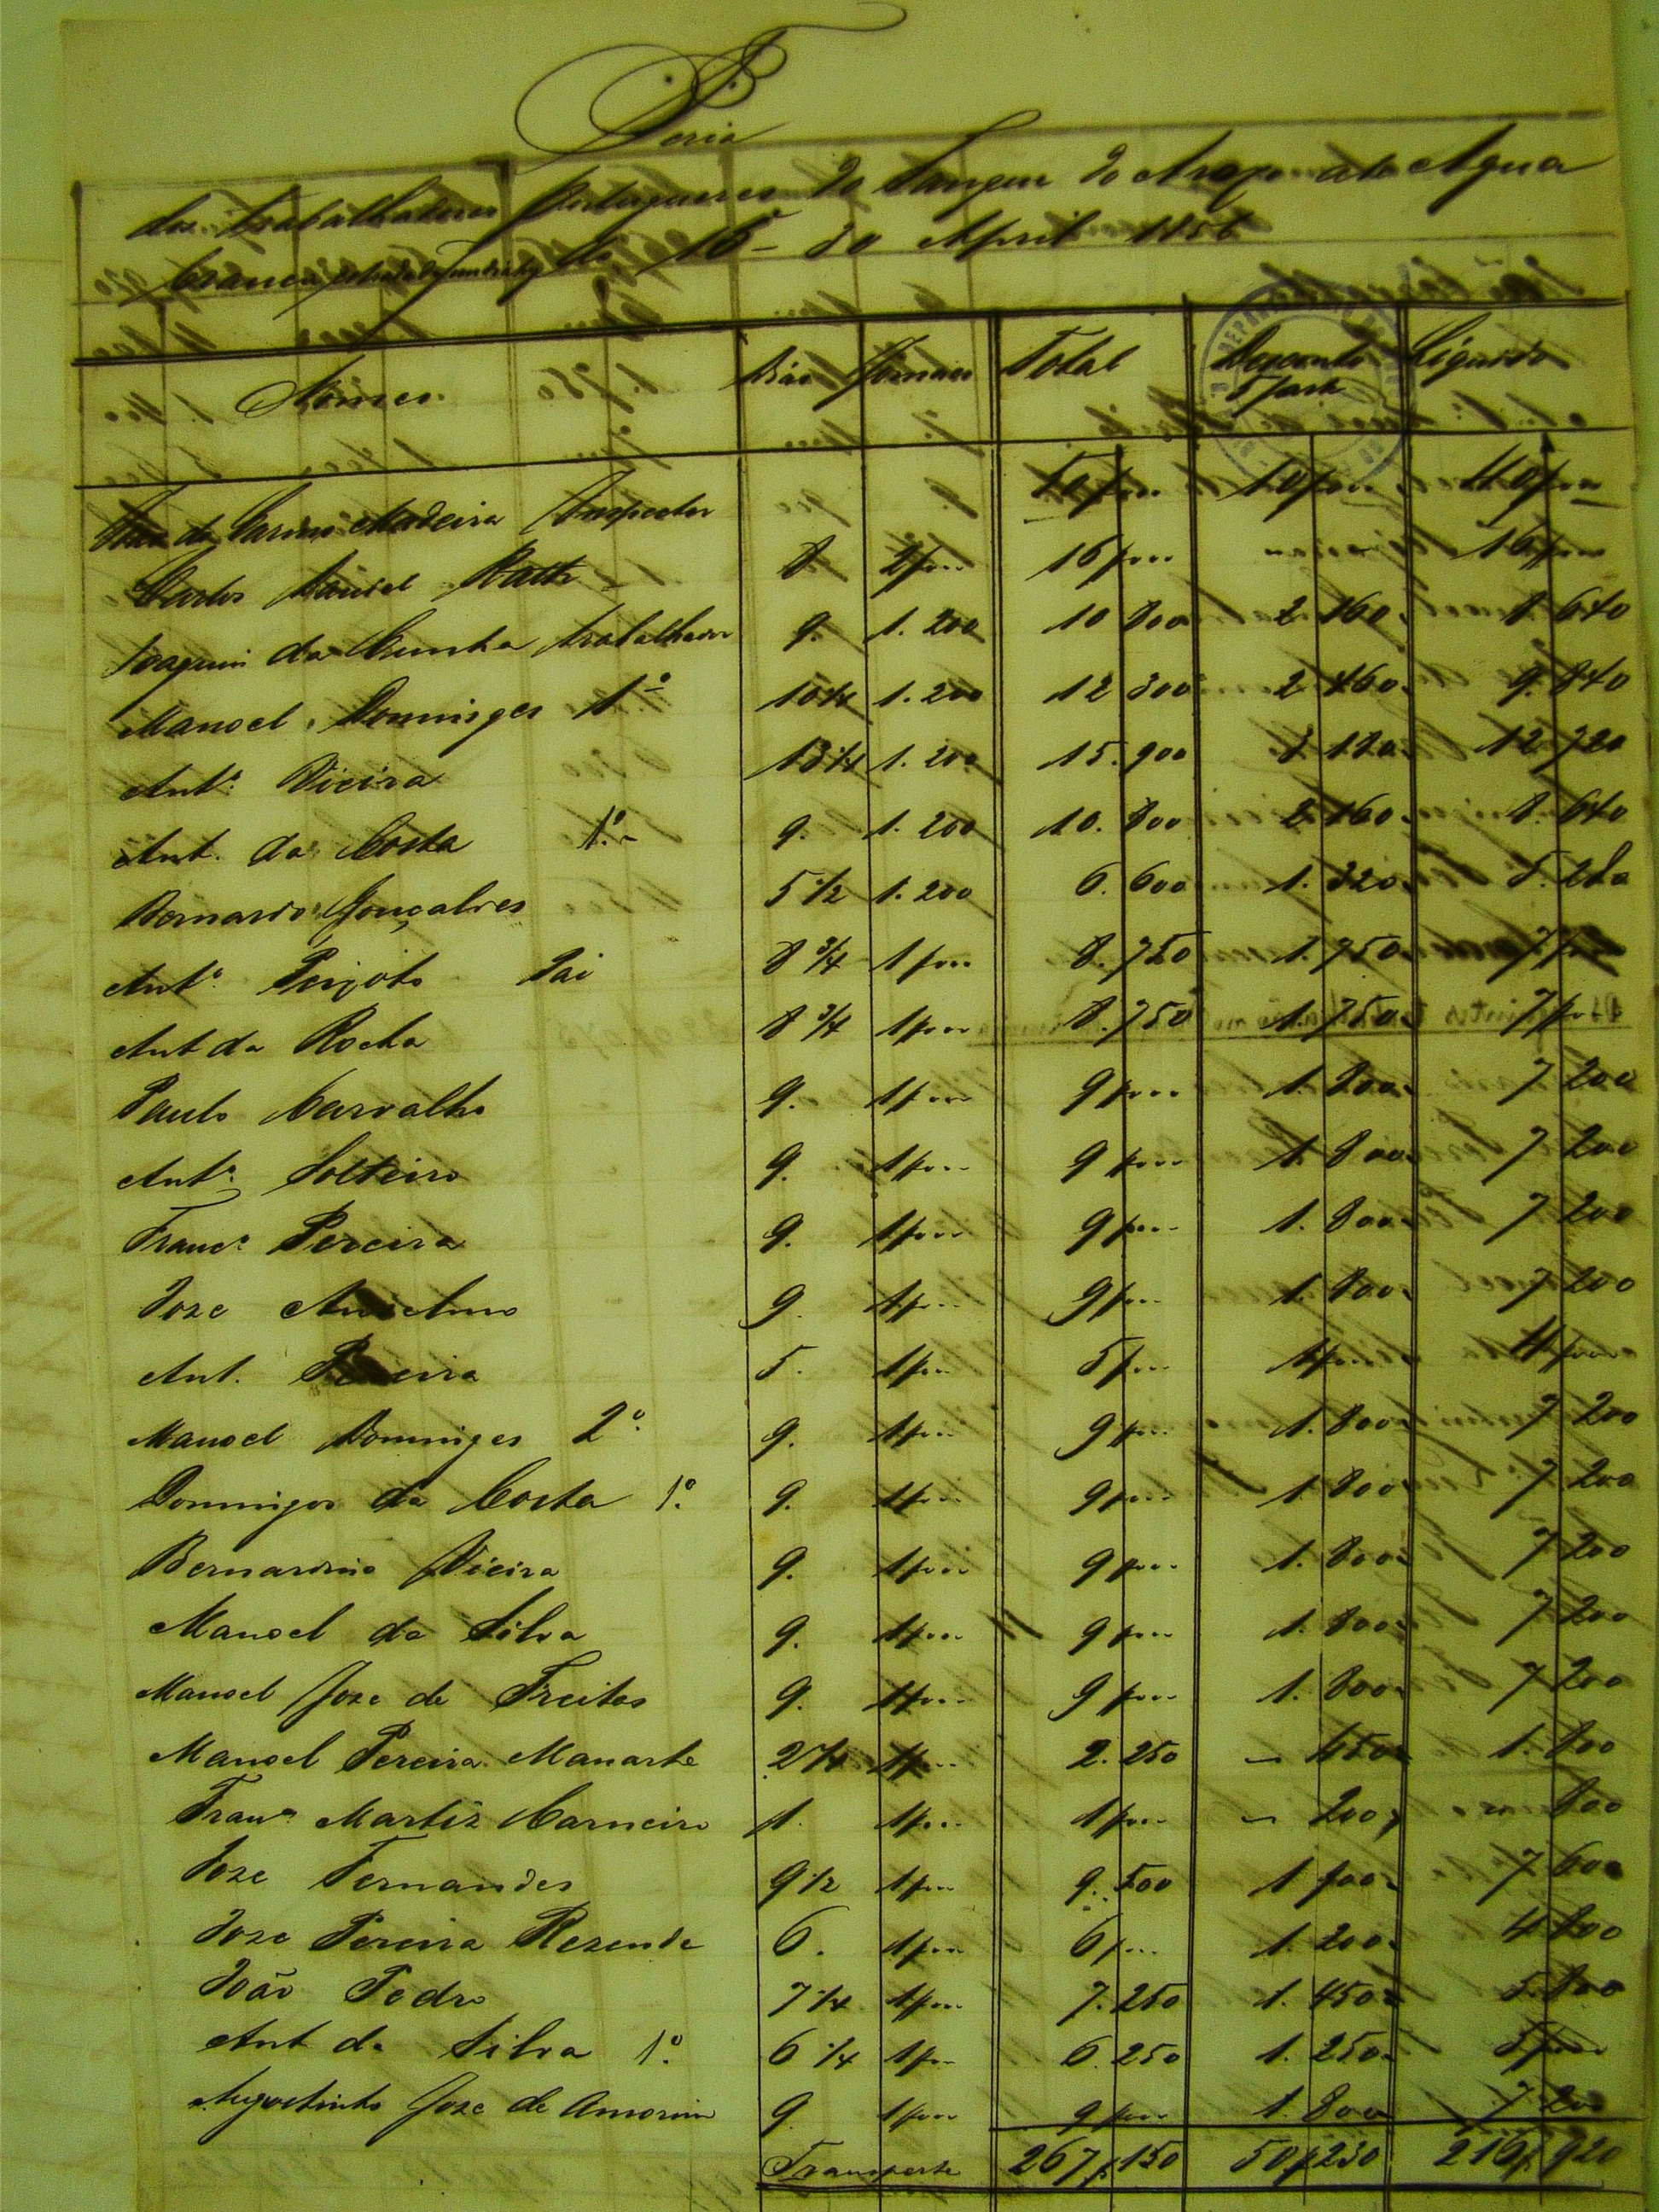 Feria
dos trabalhadores Portuguezes do Tanque do Arozo até Agua
branca do 15 - 30 April 1856
Nomes Dias Jornaes Total Desconto 5 part Liquido
Joze do Carmo Madeira Inspector 50$000 10$000 40$000
Carlos Daniel Rath 8 2$000 16$000 - - 16$000
Joaquim da Cunha trabalhador 9. 1.200 10 800 2 160 8 640
Manoel Dominges 1º 10 1/4 1.200 12 300 2 460 9.840
Antº Vieira 13 1/4 1.200 15.900 3 180 12 720
Ant. da Costa 1º- 9. 1.200 10.800 2.160 8.640
Bernardo Gonçalves 5 1/2 1.200 6.600 1.320 5.280
Antº Peijoto Pai 8 3/4 1$000 8.750 1.750 7$000
Ant da Rocha 8 3/4 1$000 8.750 1.750 7$000
Paulo Carvalho 9. 1$000 9$000 1.800 7 200
Antº Solteiro 9. 1$000 9$000 1.800 7 200
Francº Pereira 9. 1$000 9$000 1.800 7 200
Joze Anselmo 9. 1$000 9$000 1.800 7 200
Ant. Pereira 5. 1$000 5$000 1$000 4$000
Manoel Dominges 2º 9. 1$000 9$000 1.800 7 200
Domingos da Costa 1º. 9. 1$000 9$000 1.800 7 200
Bernardino Vieira 9. 1$000 9$000 1.800 7 200
Manoel da Silva 9. 1$000 9$000 1.800 7 200
Manoel Joze de Freitas 9. 1$000 9$000 1.800 7 200
Manoel Pereira Manarte 2 1/4 1$000 2.250 - 450 1.800
Franº Martiz Carneiro 1. 1$000 1$000 - 200 800
Joze Fernandes 9 1/2 1$000 9.500 1 900 7 600
Joze Pereira Rezende 6. 1$000 6$000 1.200 4 800
João Pedro 7 1/4 1$000 7.250 1.450 5.800
Ant da Silva 1º. 6 1/4 1$000 6.250 1.250 5$000
Augostinho Joze de Amorim 9 1$000 9$000 1.800 7.200
Transporte 267$150 50$230 216$920